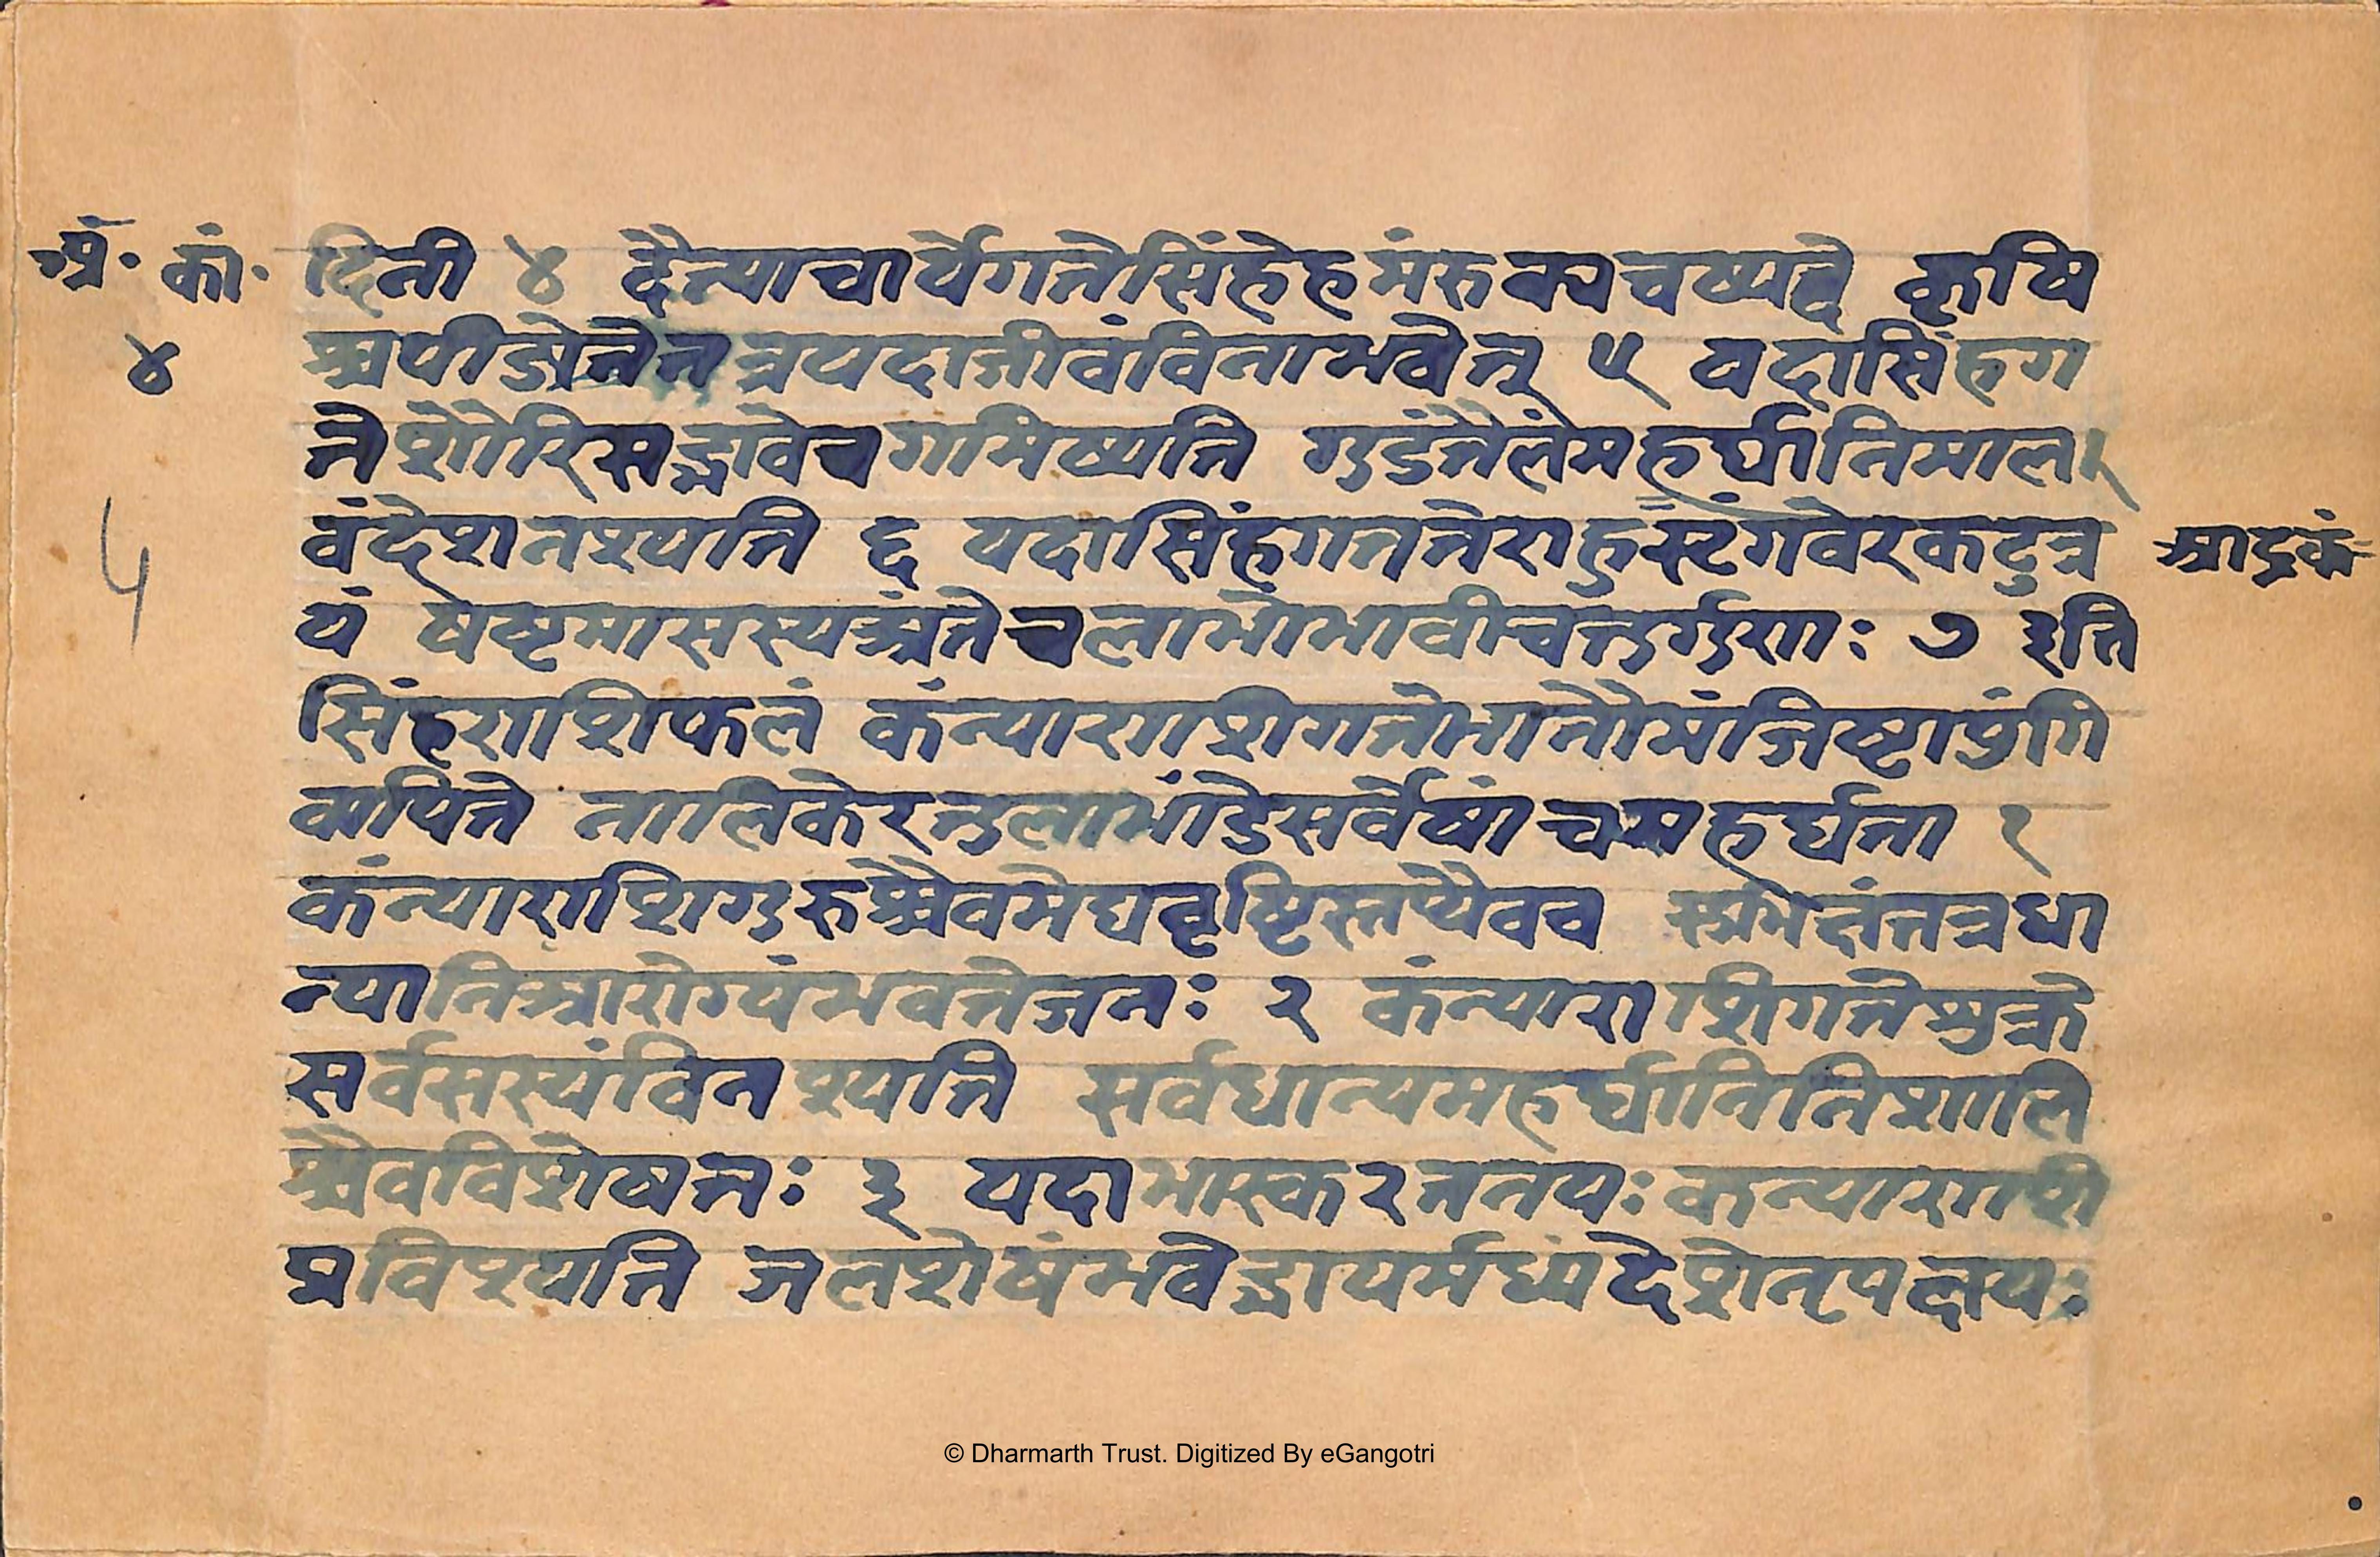 अ॑र्घ॰ कां॰
४
५
दिनी ४ दैत्याचार्येगतेसिंहेहमंरुक्यचष्पद्वे कृषि
श्चपीड्येतेतत्रयदाजीवंविनाभवेत् ५ यदासिंहग
तेशौरिसद्भावेचगामिष्यति गुडंतैलंमहर्घानिमाल
वंदेशनश्यति ६ यदासिंहंगततेराहुस्टंगवेरकटुत्र
आद्रकं
यं षष्टमासस्यअंतेचलाभोभावीचतुर्गुणाः ७ इति
सिंहराशिफलं कंन्याराशिगतेभानौमंजिष्टापुंगि
वापिते नालिकेरतुलाभांडेसर्वेषांचमहर्घता १
कंन्याराशिगुरुश्चैवमेघवृष्टिस्तथैवव स्रभिक्षंतत्रधा
न्यानिआरोग्यंभवतेजनः २ कंन्याराशिगतेशुक्रे
सर्वसस्यंविनश्यति सर्वधान्यमहर्घानिनिशालि
श्चैवविशेषतः ३ यदाभास्करततयः कन्याराशि
प्रविश्यति जलशेषंभवेद्भायर्मध्यदेशेनृपक्षयः
© Dharmarth Trust. Digitized By eGangotri